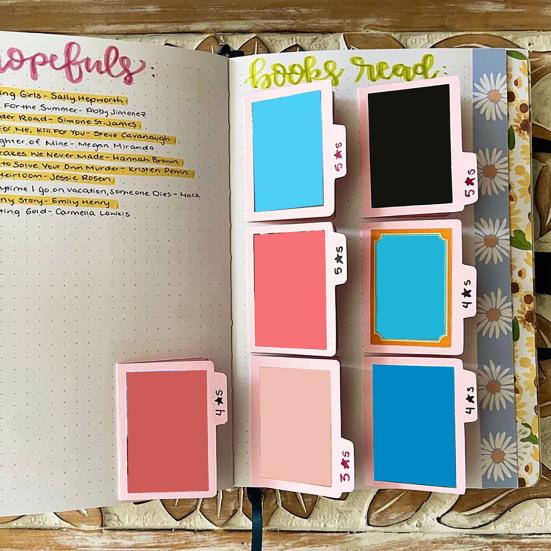 hopefuls:
ing Girls - Sally Hepworth
For the Summer - Abby Jimenez
der Road - Simone St. James
for Me, Kill For You - Steve Cavanaugh
ghter of Mine - Megan Miranda
takes We Never Made - Hannah Brown
to Solve Your Own Murder - Kristen Perrin
Heirloom - Jessie Rosen
rytime I go on vacation, someone Dies - Mack
ny Story - Emily Henry
ting Gold - Carmella Lowkis
4★s
books read:
5★s
5★s
5★s
4★s
3★s
4★s